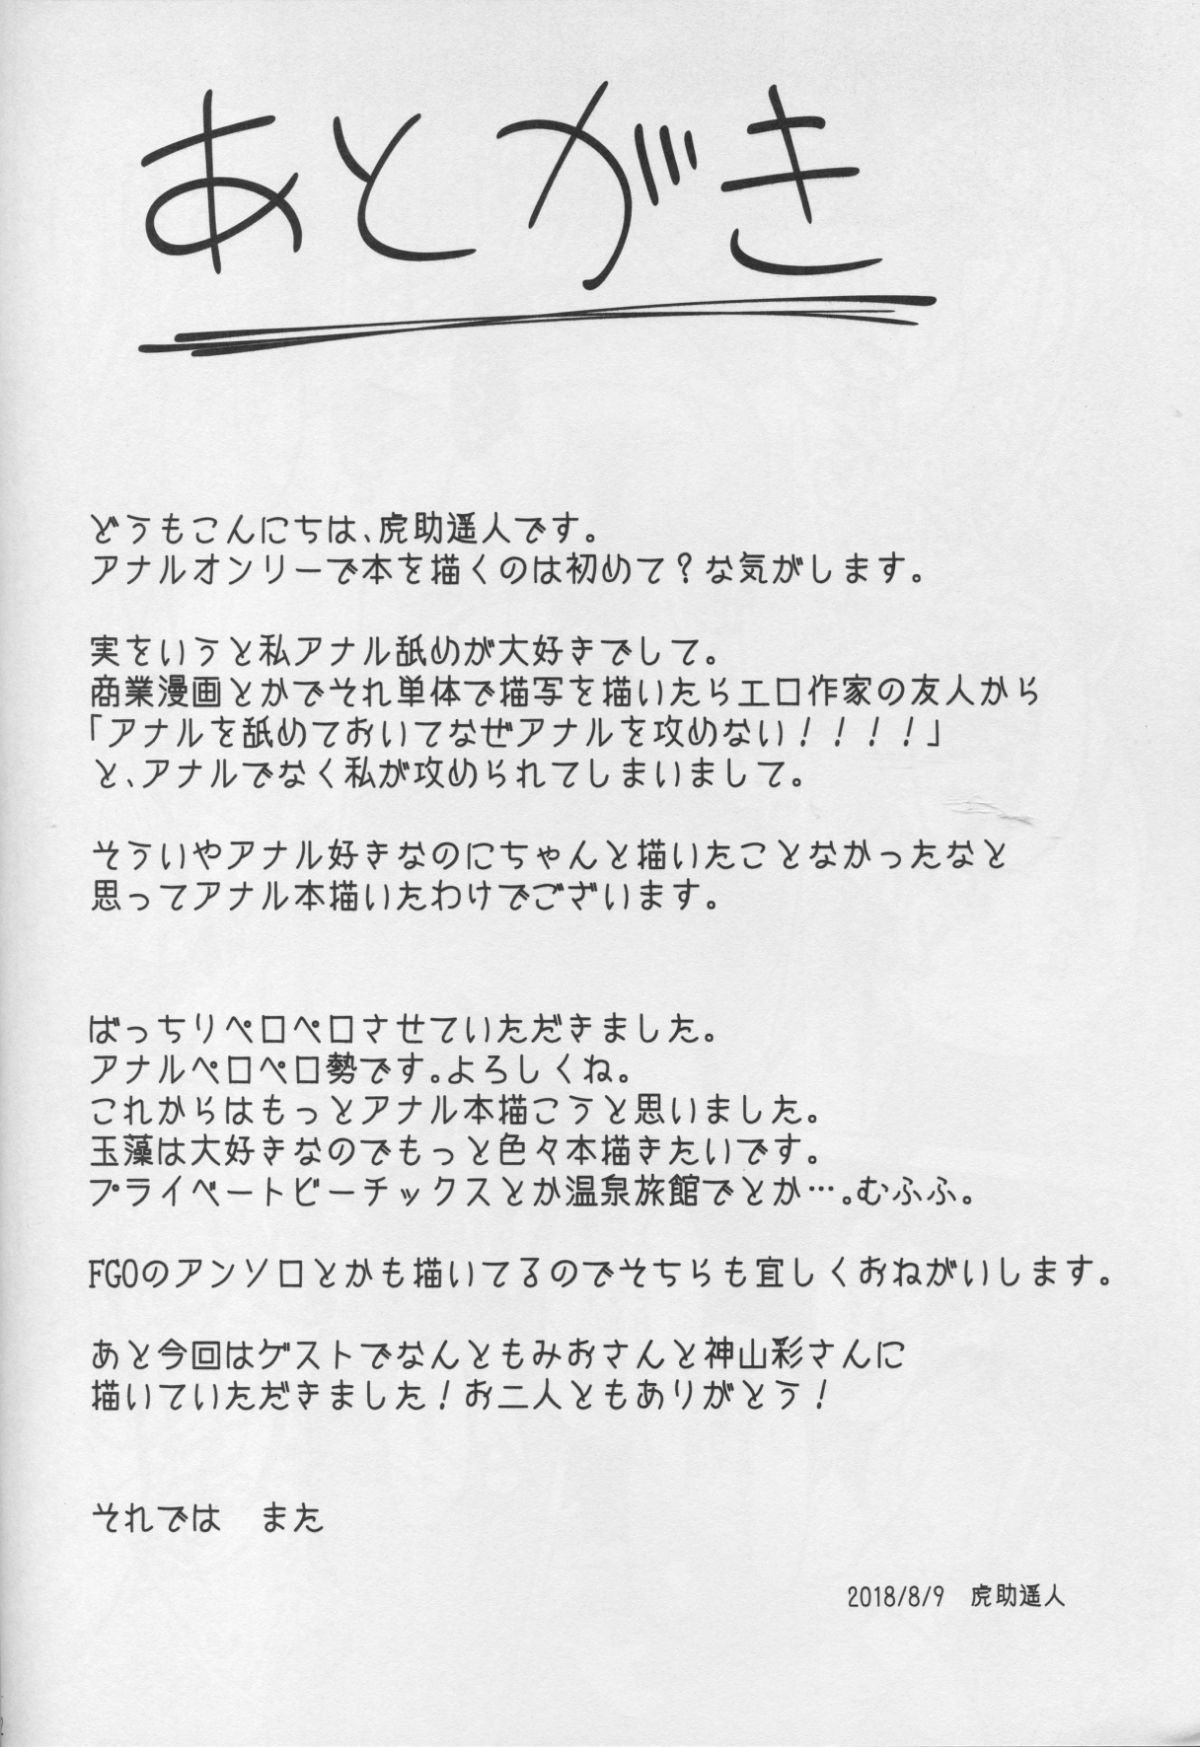 あとがき
どうもこんにちは、虎助遥人です。
アナルオンリーで本を描くのは初めて？な気がします。
実をいうと私アナル舐めが大好きでして。
商業漫画とかでそれ単体で描写を描いたらエロ作家の友人から
「アナルを舐めておいてなぜアナルを攻めない！！！！」
と、アナルでなく私が攻められてしまいまして。
そういやアナル好きなのにちゃんと描いたことなかったなと
思ってアナル本描いたわけでございます。
ばっちりペロペロさせていただきました。
アナルペロペロ勢です。よろしくね。
これからはもっとアナル本描こうと思いました。
玉藻は大好きなのでもっと色々本描きたいです。
プライベートビーチックスとか温泉旅館でとか…。むふふ。
FGOのアンソロとかも描いてるのでそちらも宜しくおねがいします。
あと今回はゲストでなんともみおさんと神山彩さんに
描いていただきました！お二人ともありがとう！
それでは　また
2018/8/9　虎助遥人